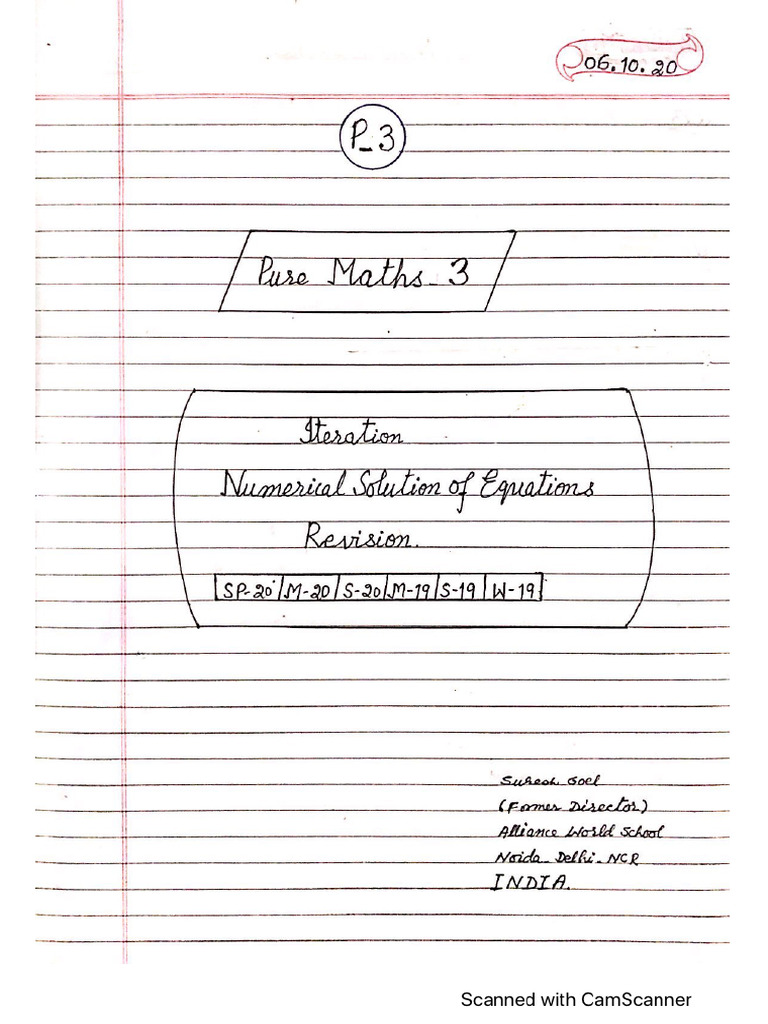 06.10.20
P_3
Pure Maths_3
Iteration
Numerical Solution of Equations
Revision.
SP-20 M-20 S-20 M-19 S-19 W-19
Suresh Goel
(Former Director)
Alliance World School
Noida_ Delhi_NCR
INDIA.
Scanned with CamScanner